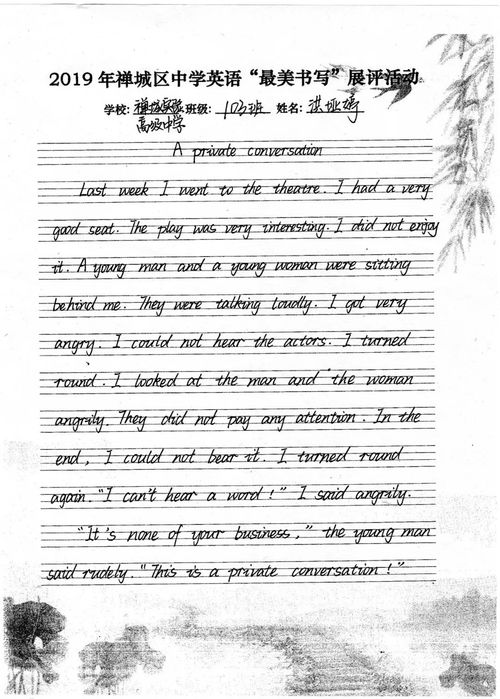 2019年禅城区中学英语“最美书写”展评活动。
学校: 禅城实验 班级: 103班 姓名: 洪
高级中学
A private conversation
Last week I went to the theatre. I had a very
good seat. The play was very interesting. I did not enjoy
it. A young man and a young woman were sitting
behind me. They were talking loudly. I got very
angry. I could not hear the actors. I turned
round. I looked at the man and the woman
angrily. They did not pay any attention. In the
end, I could not bear it. I turned round
again. "I can't hear a word!" I said angrily.
"It's none of your business," the young man
said rudely. "This is a private conversation!"